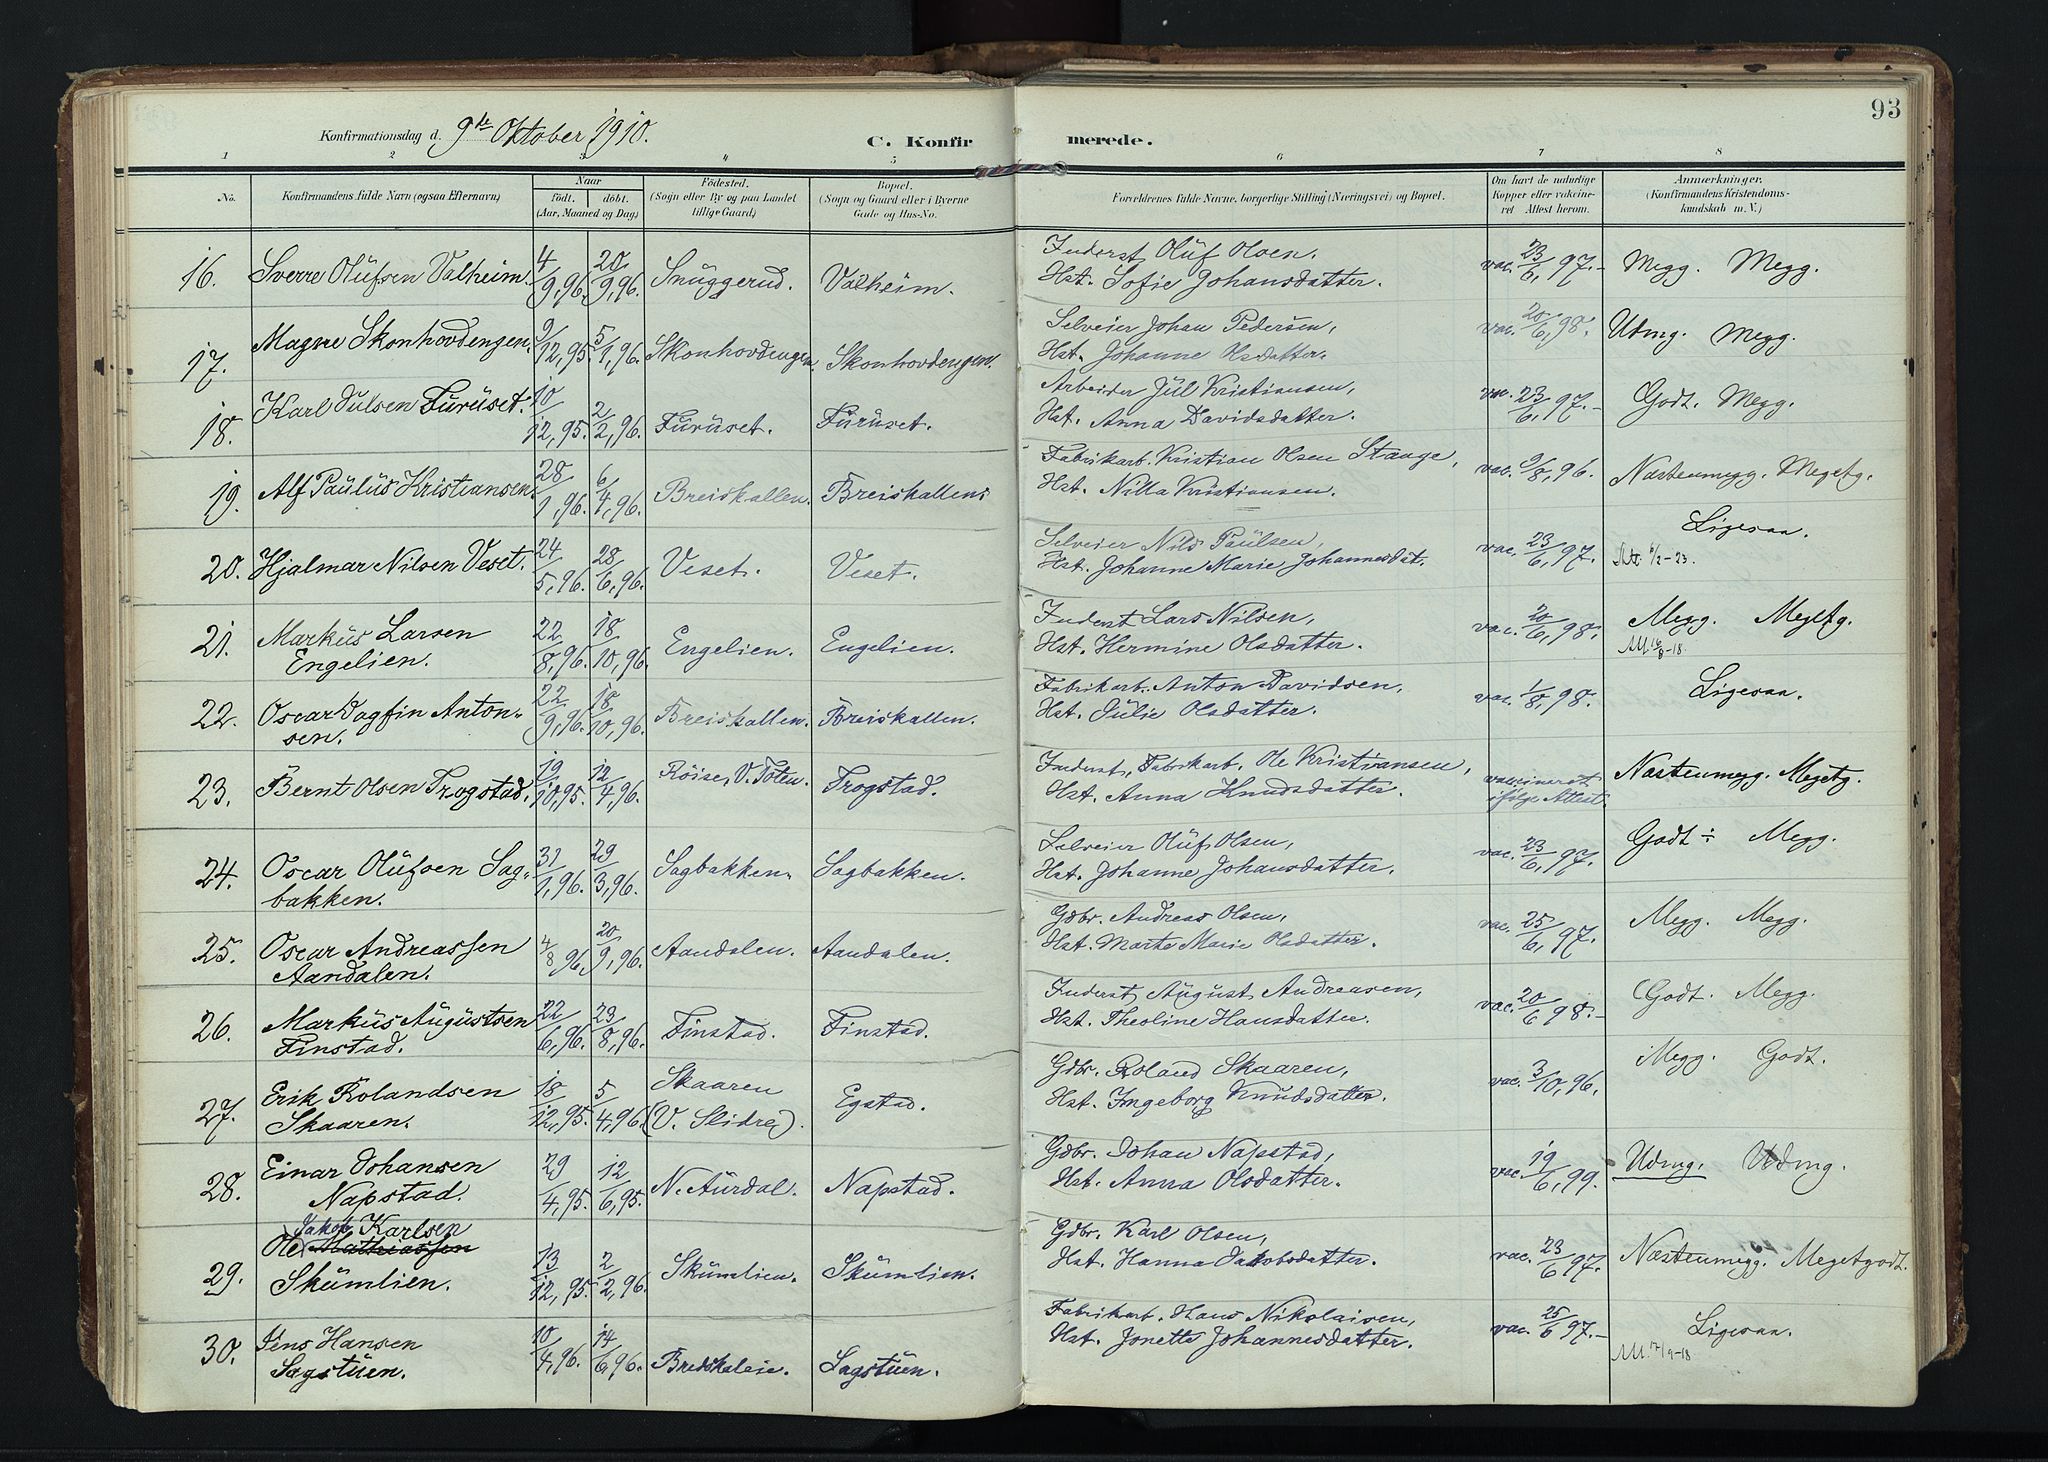 93
Konfirmationsdag d. 9de Oktober 1910.
C. Konfirmerede.
1 2 3 4 5 6 7 8
No. Konfirmandens fulde Navn (ogsaa Efternavn) Naar født. døbt. (Aar, Maaned og Dag) Fødested. (Sogn eller By og paa Landet tillige Gaard) Bopæl. (Sogn og Gaard eller i Byerne Gade og Hus-No. Forældrenes fulde Navne, borgerlige Stilling (Næringsvei) og Bopæl. Om havt de naturlige Kopper eller vaccineret Attest herom. Anmærkninger. (Konfirmandens Kristendomskundskab m. V.)
16. Sverre Olüfsen Valheim. 4/9,96. 20/9,96. Snüggerud. Valheim. Inderst Olüf Olsen, vac. 23/6,97.- Megg. Megg.
Hst. Sofie Johansdatter.
17. Magne Skonhovdengen. 9/12,95. 5/1,96. Skonhovdengen. Skonhovdengen. Selveier Johan Pedersen, vac. 20/6,98. Udmg. Megg.
Hst. Johanne Olsdatter.
18. Karl Julsen Furüset. 10/12,95. 2/2,96. Furüset. Furüset. Arbeider Jül Kristiansen, vac. 23/6,97.- Godt. Megg.
Hst. Anna Davidsdatter.
19. Alf Paulüs Kristiansen. 28/1,96. 6/4,96. Breiskallen. Breiskallen. Fabrikarb. Kristian Olsen Stange, vac. 9/8,96. Næstenmegg. Megetg.
Hst. Nilla Kristiansen.
20. Hjalmar Nilsen Veset. 24/5,96. 28/6,96. Veset. Veset. Selveier Nils Paülsen, vac. 23/6,97. Ligesaa.
Hst. Johanne Marie Johannesdat. /2-23.
21. Markus Larsen 22/8,96. 18/10,96. Engelien. Engelien. Inderst Lars Nilsen, vac. 20/6,98. Megg. Megetg.
Engelien. Hst. Hermine Olsdatter. Att. 16/8-18.
22. Oscar Dagfin Anton- 22/9,96. 18/10,96. Breiskallen. Breiskallen. Fabrikarb. Anton Davidsen, vac. 1/8,98. Ligesaa.
sen. Hst. Jülie Olsdatter.
23. Bernt Olsen Trogstad. 19/10,95. 12/4,96. Röise, V. Toten. Trogstad. Inderst, Fabrikarb. Ole Kristiansen, vaccineret Næstenmegg. Megetg.
Hst. Anna Knudsdatter. ifølge Attest.
24. Oscar Olüfsen Sag- 31/1,96. 29/3,96. Sagbakken. Sagbakken. Selveier Olüf Olsen, vac. 23/6,97. Godt ÷ Megg.
bakken. Hst. Johanne Johansdatter.
25. Oscar Andreassen 4/8 96. 20/9,96. Aandalen. Aandalen. Gdbr. Andreas Olsen, vac. 25/6,97. Megg. Megg.
Aandalen. Hst. Marte Marie Olsdatter.
26. Markus Augüstsen 22/6,96. 23/8,96. Finstad. Finstad. Inderst August Andreasen, vac. 20/6 98.- Godt. Megg.
Finstad. Hst. Theoline Hansdatter.
27. Erik Rolandsen 18/12,95. 5/4,96. Skaaren Egstad. Gdbr. Roland Skaaren, vac. 3/10,96. Megg. Godt.
Skaaren. (V. Slidre). Hst. Ingeborg Knudsdatter.
28. Einar Johansen 29/4,95. 12/6,95. N. Aurdal. Napstad. Gdbr. Johan Napstad, vac. 19/6,99. Udmg. Udmg.
Napstad. Hst. Anna Olsdatter.
29. Ole Jakob Karlsen Mathiassen 13/12,95. 2/2,96. Skümlien. Skümlien. Gdbr. Karl Olsen, vac. 23/6 97. Næstenmegg. Megetgodt.
Skümlien. Hst. Hanna Jakobsdatter.
30. Jens Hansen 10/4,96. 14/6,96. Bredskaleie. Sagstüen. Fabrikarb. Hans Nikolaisen, vac. 25/6 97.- Ligesaa.
Sagstüen. Hst. Jonette Johannesdatter. Att. 17/9-18